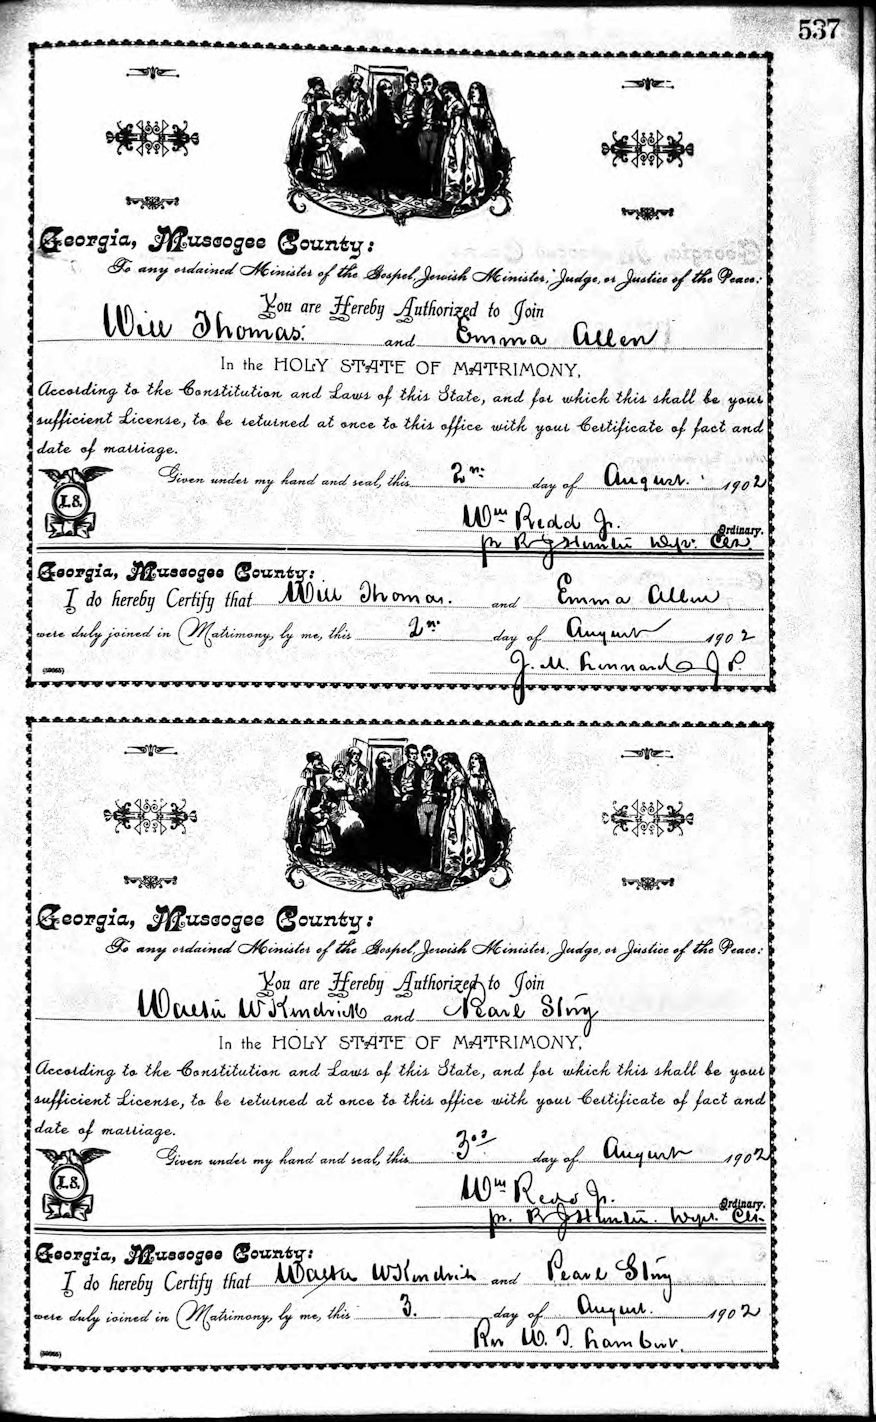 537
Georgia, Muscogee County:
To any ordained Minister of the Gospel, Jewish Minister, Judge, or Justice of the Peace:
You are Hereby Authorized to Join
Will Thomas and Emma Allen
In the HOLY STATE OF MATRIMONY,
According to the Constitution and Laws of this State, and for which this shall be your
sufficient License, to be returned at once to this office with your Certificate of fact and
date of marriage.
L.S.
Given under my hand and seal, this 2n day of August 1902
Wm Redd Jr. Ordinary.
pr R J Hunter Depr. Clk.
Georgia, Muscogee County:
I do hereby Certify that Will Thomas. and Emma Allen
were duly joined in Matrimony, by me, this 2n day of August 1902
J. M. Lennard J P.
Georgia, Muscogee County:
To any ordained Minister of the Gospel, Jewish Minister, Judge, or Justice of the Peace:
You are Hereby Authorized to Join
Walter W Kendrick and Pearl
In the HOLY STATE OF MATRIMONY,
According to the Constitution and Laws of this State, and for which this shall be your
sufficient License, to be returned at once to this office with your Certificate of fact and
date of marriage.
L.S.
Given under my hand and seal, this 3rd day of August 1902
Wm Redd Jr. Ordinary.
pr. R J Hunter. Depr. Clk.
Georgia, Muscogee County:
I do hereby Certify that Walter W Kendrick and Pearl
were duly joined in Matrimony, by me, this 3. day of August. 1902
Rev W. T. Lambert.